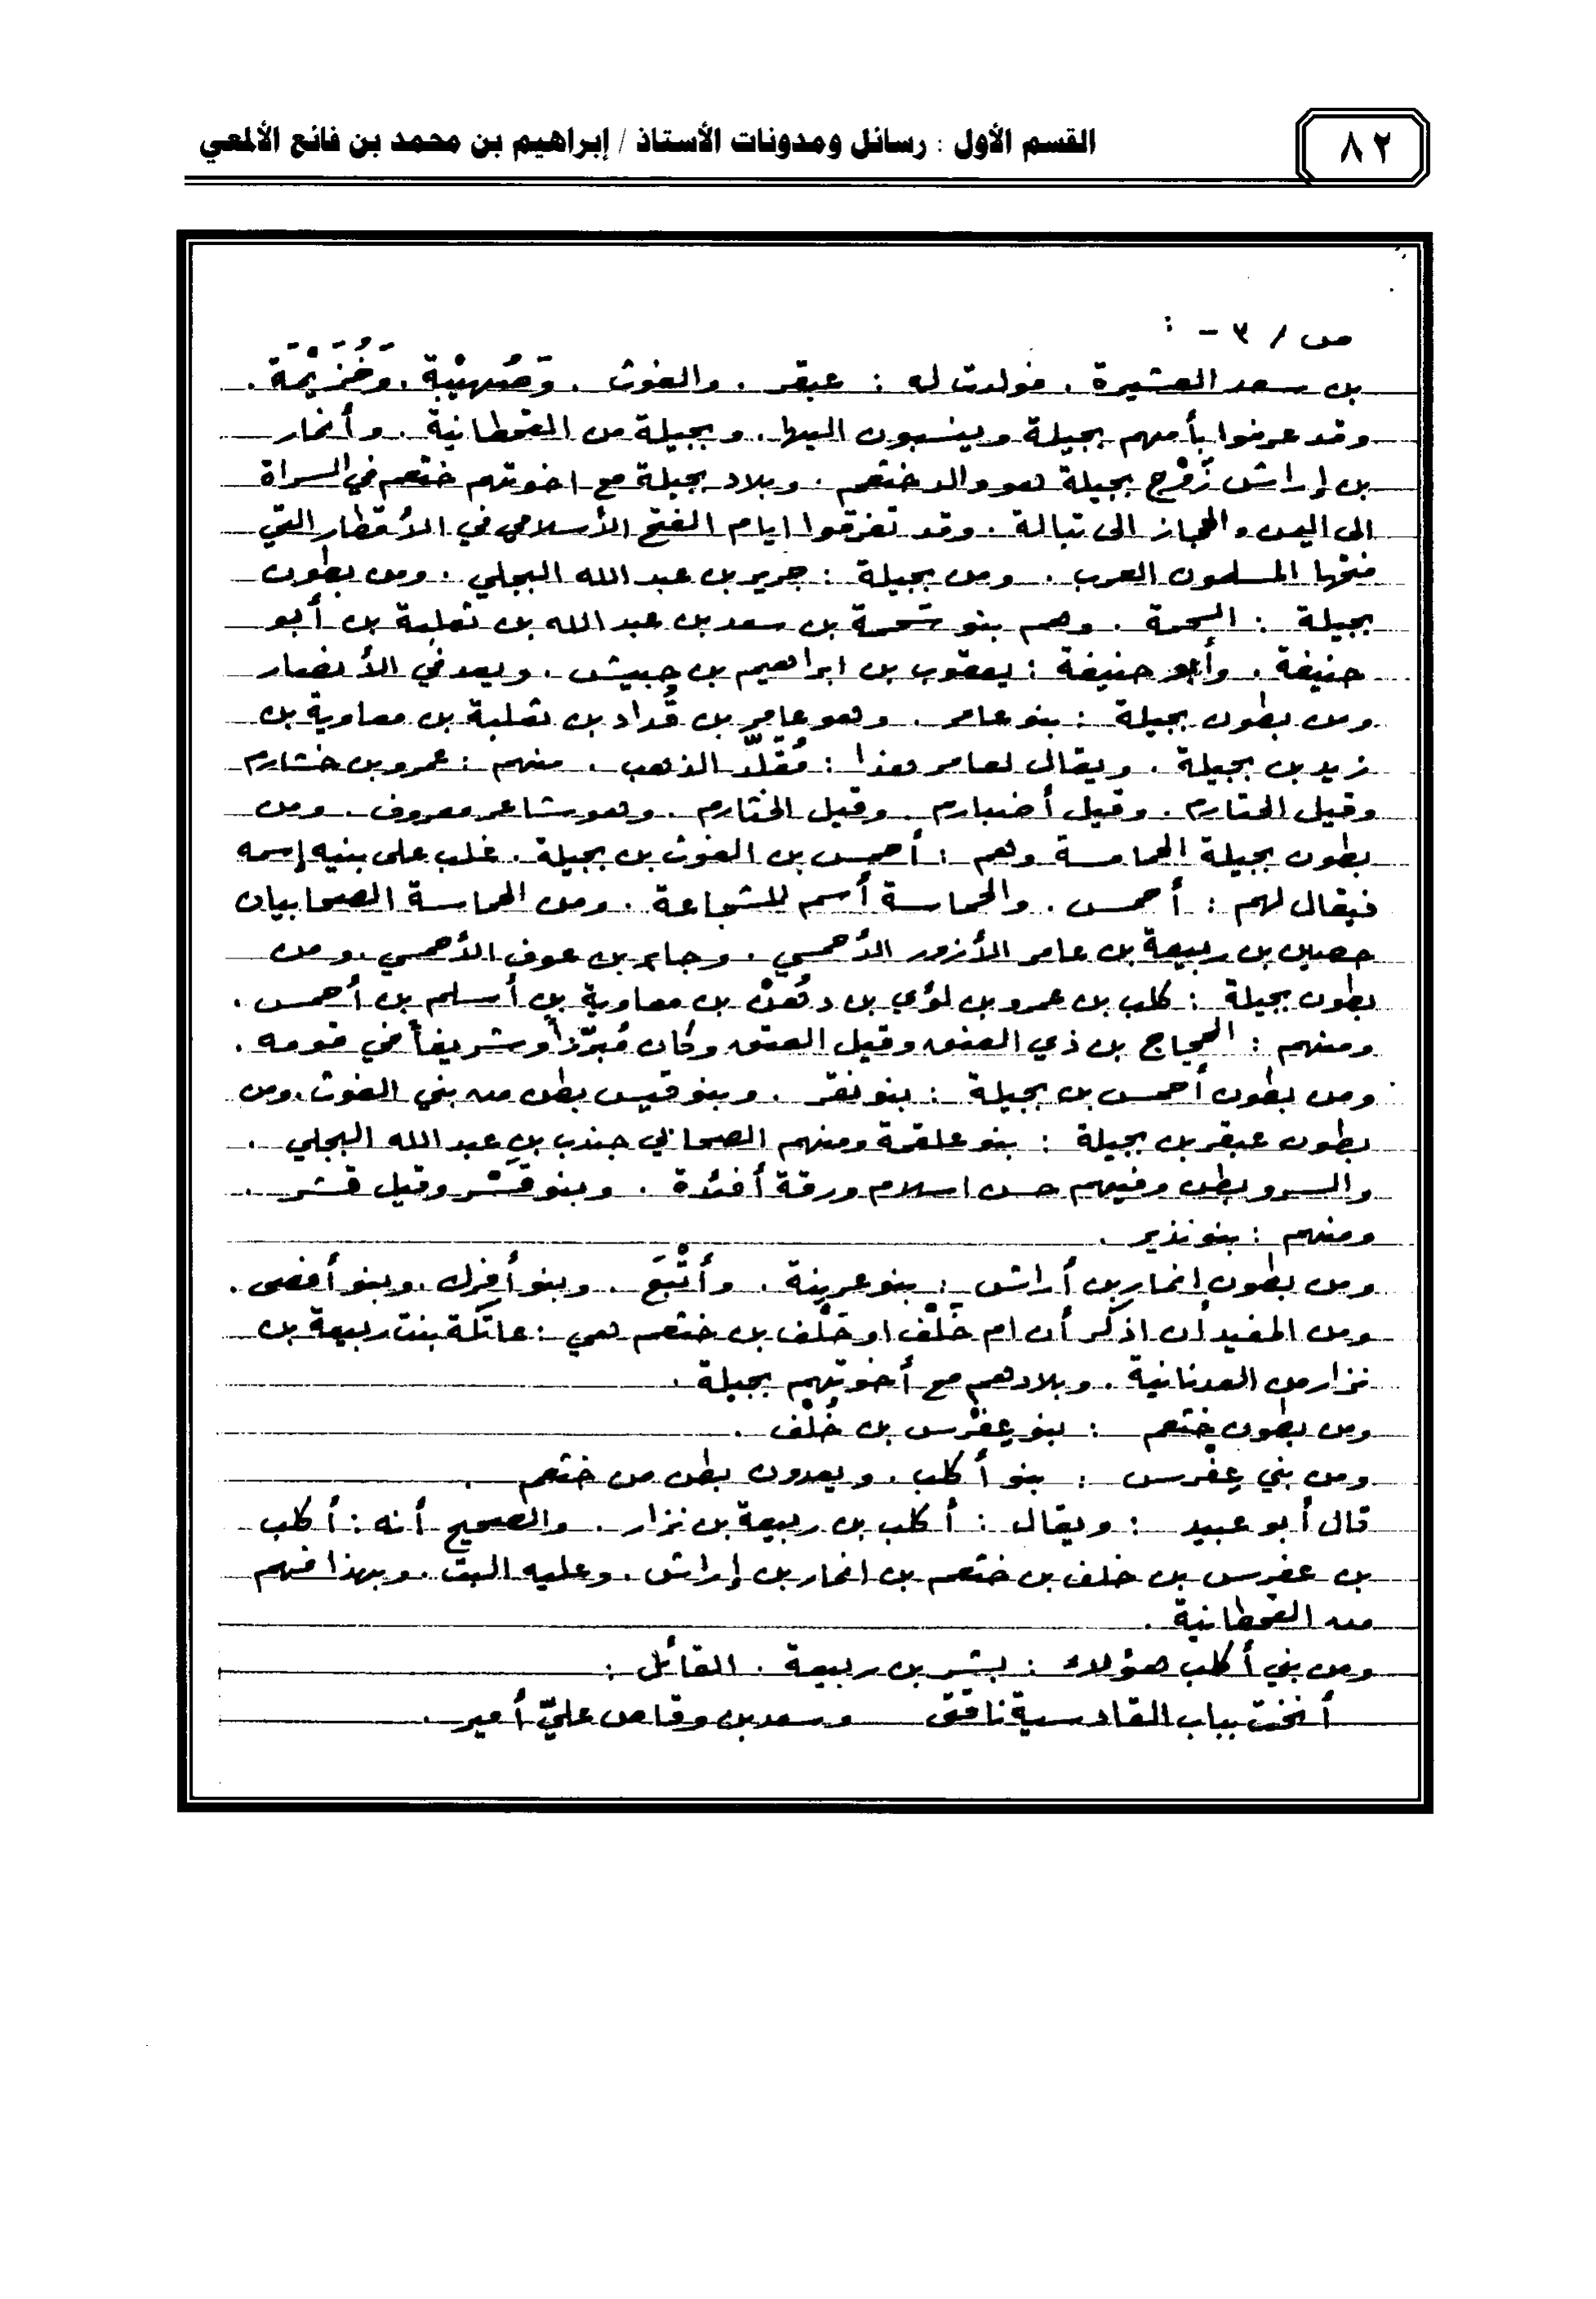 القسم الأول : رسائل ومدونات الأستاذ / إبراهيم بن محمد بن فائع الألمعي
٨٢
ص / ٣ - :
بن سعد العشيرة . فولدت له : عبقر . والغوث . وَصُهيْبَة . وَخُزَيْمَة .
وقد عرفوا بأمهم بجيلة وينسبون اليها . وبجيلة من القحطانية . وأنمار
بن إراش زَوْج بجيلة هو والد خثعم . وبلاد بجيلة مع اخوتهم خثعم في السراة
الى اليمن والحجاز الى تبالة . وقد تفرقوا ايام الفتح الأسلامي في الأقطار التي
فتحها المسلمون العرب . ومن بجيلة : جرير بن عبد الله البجلي . ومن بطون
بجيلة : السحمة . وهم بنو سَحمة بن سعد بن عبد الله بن ثعلبة بن أبو
حنيفة . وأبو حنيفة : يعقوب بن ابراهيم بن حبيش . ويعد في الأنصار
ومن بطون بجيلة : بنو عامر . وهو عامر بن قُداد بن ثعلبة بن معاوية بن
زيد بن بجيلة . ويقال لعامر هذا : مُقَلِّد الذهب . منهم : عمرو بن خشارم
وقيل الختارم . وقيل أضبارم . وقيل الخثارم . وهو شاعر معروف . ومن
بطون بجيلة الحمامسة وهم : أحمس بن الغوث بن بجيلة . غلب على بنيه إسمه
فيقال لهم : أحمس . والحماسة أسم للشجاعة . ومن الحماسة الصحابيان
حصين بن ربيعة بن عامر الأزور الأحمسي . وجابر بن عوف الأحمسي . ومن
بطون بجيلة : كلب بن عمرو بن لؤي بن دُهْن بن معاوية بن أسلم بن أحمس .
ومنهم : الحجاج بن ذي العنق وقيل العتق وكان مُبرّزاً وشريفاً في قومه .
ومن بطون أحمس بن بجيلة : بنو نفر . وبنو قيس بطن من بني الغوث . ومن
بطون عبقر بن بجيلة : بنو علقمة ومنهم الصحابي جندب بن عبد الله البجلي .
والسرو بطن وفيهم حسن اسلام ورقة أفئدة . وبنو قَسْر وقيل قشر .
ومنهم : بنو نذير .
ومن بطون انمار بن أراش : بنو عرينة . وأَتْبَع . وبنو أفرك . وبنو أفصى .
ومن المفيد أن اذكر أن ام خَلْف او حَلْف بن خثعم هي : عاتكة بنت ربيعة بن
نزار من العدنانية . وبلادهم مع أخوتهم بجيلة .
ومن بطون خثعم : بنو عِفْرس بن خُلْف .
ومن بني عِفْرس : بنو أكلب . ويعدون بطن من خثعم .
قال أبو عبيد : ويقال : أكلب بن ربيعة بن نزار . والصحيح أنه : أكلب
بن عفرس بن خلف بن خثعم بن انمار بن إراش . وعليه البت . وبهذا فهم
من القحطانية .
ومن بني أكلب هؤلاء : بشر بن ربيعة . القائل :
أنخت بباب القادسية ناقتي وسعد بن وقاص عليّ أمير .